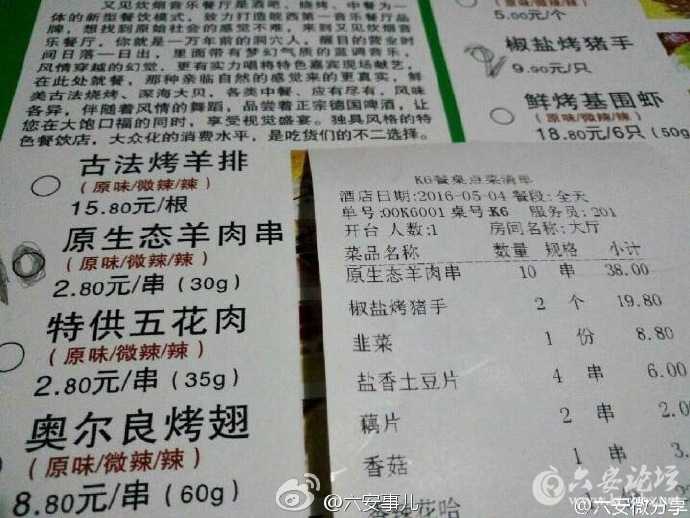 又见炊烟音乐餐厅是酒吧、烧烤、中餐为一
体的新型餐饮模式，致力打造皖西第一音乐餐厅品
牌，想找到原始社会的感觉不难，来到又见炊烟音
乐餐厅，你就是一万年前的洞穴人，
日落一日出，里面带有梦幻气质的蓝调音乐，
风情穿越的幻觉，更有实力唱将特色嘉宾现场献艺，
在此处就餐，那种亲临自然的感觉来的更真实，鲜
美古法烧烤、深海大贝，各类中餐、应有尽有，风味
各异，伴随着风情的舞蹈，品尝着正宗德国啤酒，让
您在大饱口福的同时，享受视觉盛宴。独具风格的特
色餐饮店，大众化的消费水平，是吃货们的不二选择。
古法烤羊排
(原味/微辣/辣)
15.80元/根
原生态羊肉串
(原味/微辣/辣)
2.80元/串 (30g)
特供五花肉
(原味/微辣/辣)
2.80元/串 (35g)
奥尔良烤翅
(原味/微辣/辣)
8.80元/串 (60g)
(原味/微辣/辣)
5.00元/个
椒盐烤猪手
9.90元/只
鲜烤基围虾
(原味/微辣/辣)
18.80元/6只 (50g)
K6餐桌点菜清单
酒店日期:2016-05-04 餐段:全天
单号:00K6001 桌号:K6 服务员:201
开台 人数:1 房间名称:大厅
菜品名称 数量 规格 小计
原生态羊肉串 10 串 38.00
椒盐烤猪手 2 个 19.80
韭菜 1 份 8.80
盐香土豆片 4 串 6.00
藕片 2 串 2.0
香菇 1 串 3.
花哈
@六安事儿
六安论坛
@六安微分享